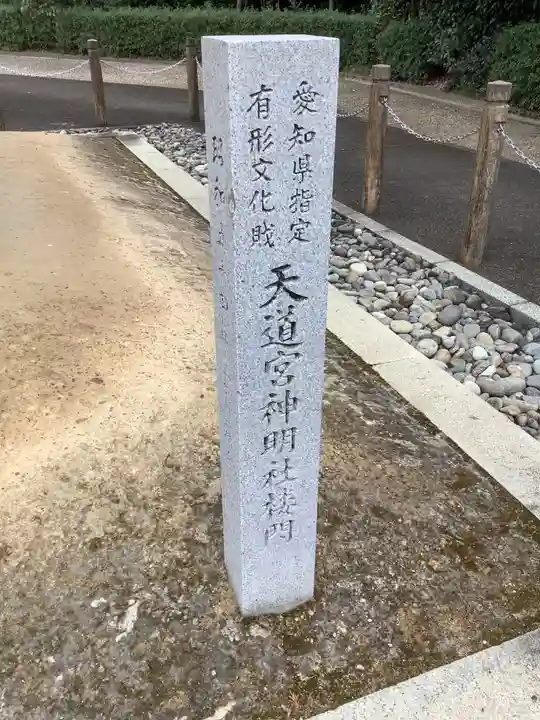 愛知県指定
有形文化財
天道宮神明社楼門